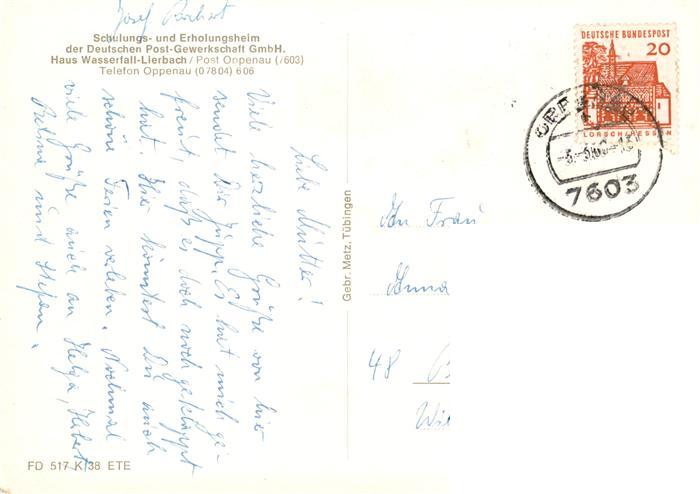 Josef
Schulungs- und Erholungsheim
der Deutschen Post-Gewerkschaft GmbH.
Haus Wasserfall-Lierbach / Post Oppenau (7603)
Telefon Oppenau (07804) 606
Liebe Mutter!
Viele herzliche Grüße von hier
sendet Dir Jupp. Es hat mich ge-
freut, daß es doch noch geklappt
hat. Hier könntest Du auch
schöne Ferien verleben. Nochmal
viele Grüße auch an Helga, Hubert,
und Stefan.
FD 517 K 38 ETE
Gebr. Metz, Tübingen
DEUTSCHE BUNDESPOST
20
LORSCH/HESSEN
7603
An Frau
Anna
48 B